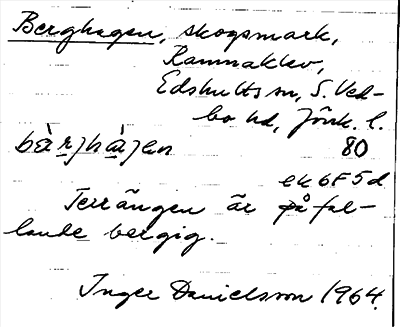 Berghagen, skogsmark,
Ramnaklev,
Edshults sn, S. Ved-
bo hd, Jönk. l.
bàrjhàjen 80
ek 6F5d
Terrängen är påfal-
lande bergig.
Inger Danielsson 1964.